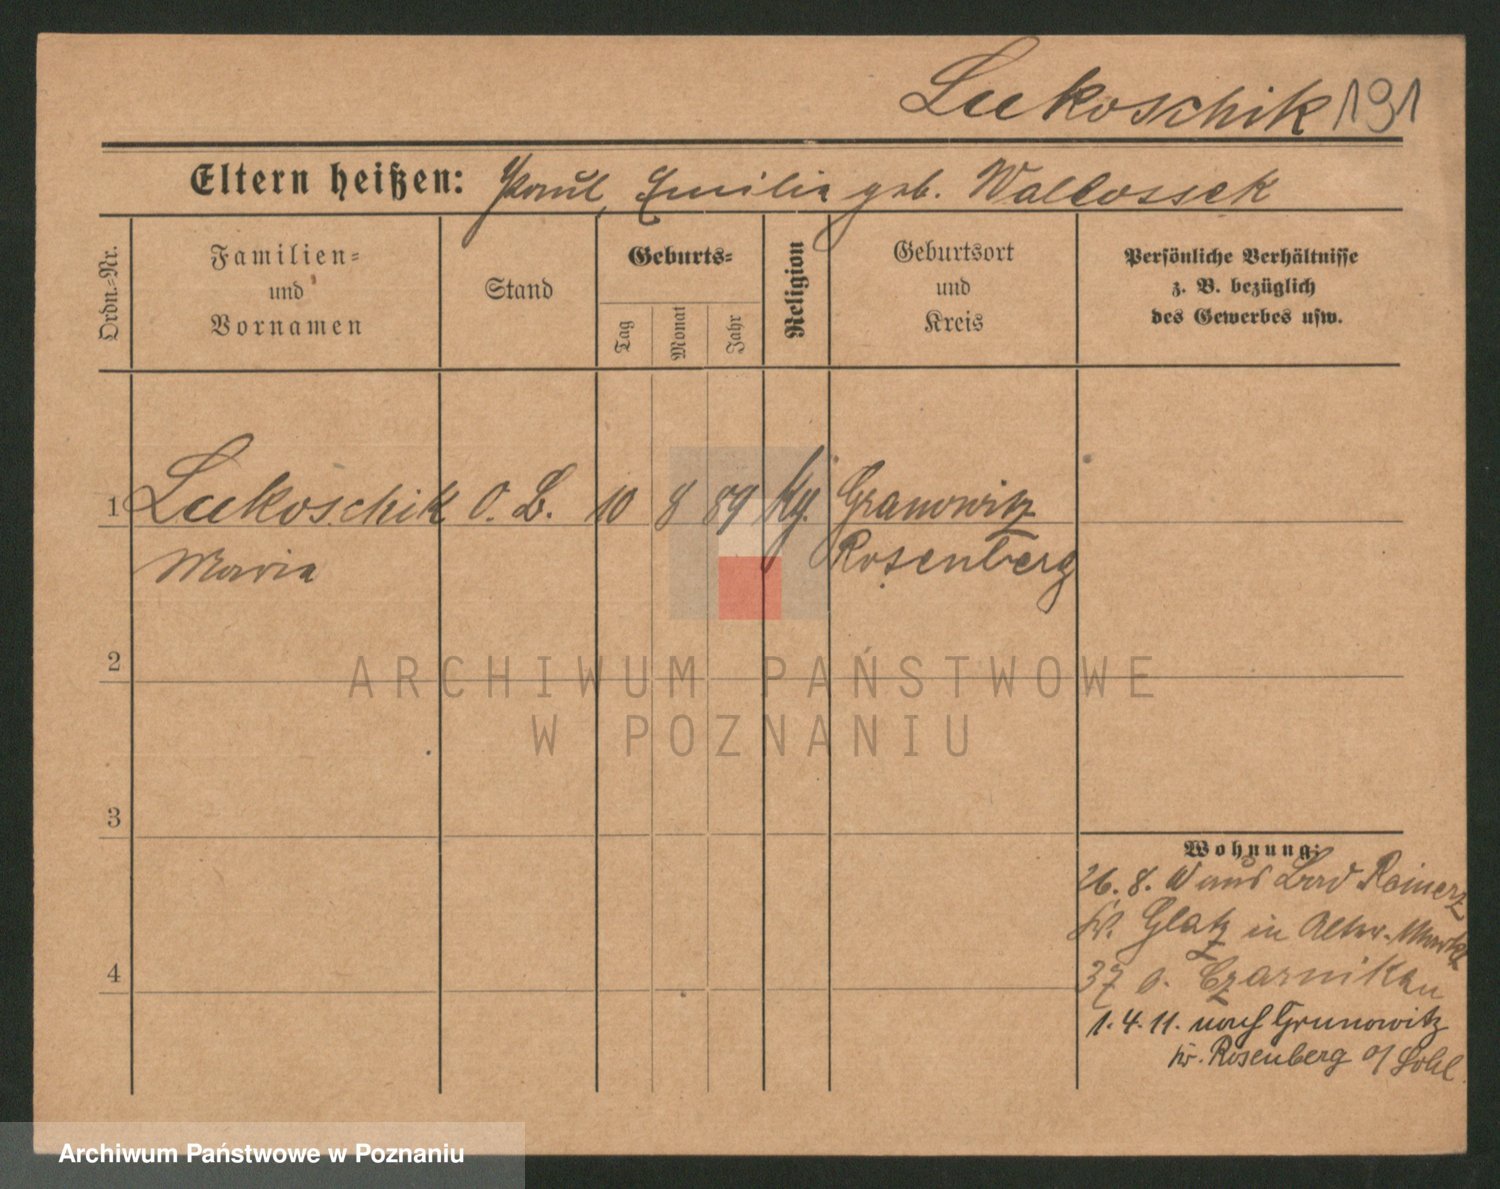 Lukoschik 191
Eltern heißen: Paul, Emilie geb. Wallossek
Ordn.-Nr.
Familien-
und
Vornamen
Stand
Geburts-
Tag
Monat
Jahr
Religion
Geburtsort
und
Kreis
Persönliche Verhältnisse
z. B. bezüglich
des Gewerbes usw.
1 Lukoschik O. L. 10 8 89 Grunowitz
Maria Rosenberg
2
3
4
Wohnung:
26. 8. aus Bad Reinerz
Kr. Glatz in Alter-Markt
37 b. Czarnikau
1. 4. 11. nach Grunowitz
Kr. Rosenberg o/
ARCHIWUM PAŃSTWOWE
W POZNANIU
Archiwum Państwowe w Poznaniu